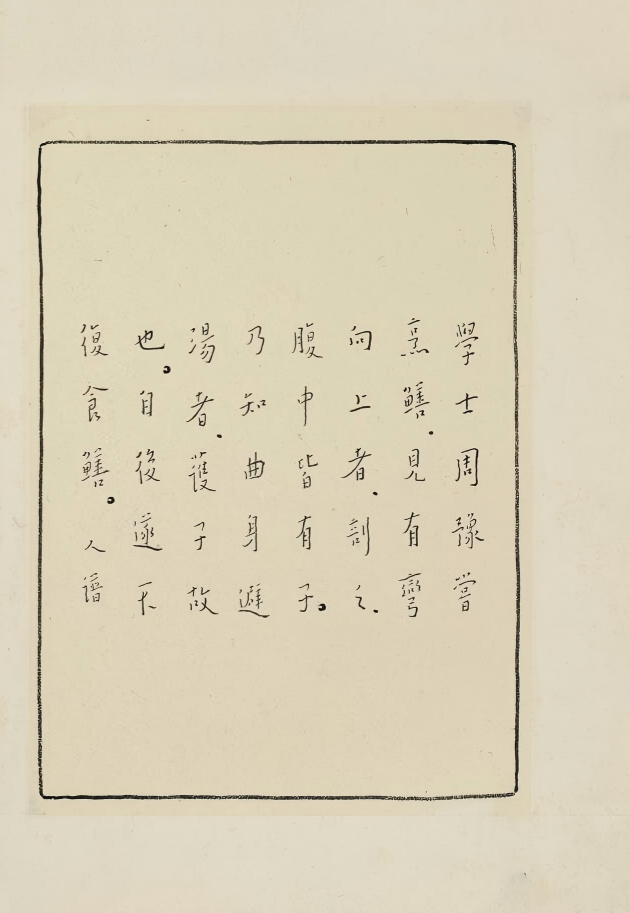 學士周豫嘗
烹鱔.見有彎
向上者.剖之.
腹中皆有子。
乃知曲身避
湯者.護子故
也。自後遂不
復食鱔。人譜